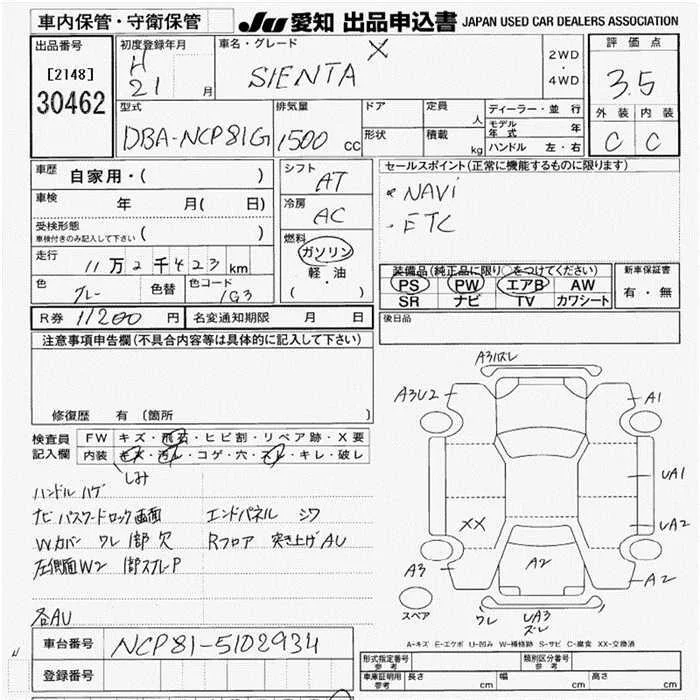 車内保管・守衛保管
JU 愛知 出品申込書 JAPAN USED CAR DEALERS ASSOCIATION
出品番号
[2148]
30462
初度登録年月
H
21 月
車名・グレード
SIENTA X
2WD
・
4WD
評価点
3.5
外装 内装
C C
型式
DBA-NCP81G
排気量
1500 cc
ドア
形状
定員 人
積載 kg
ディーラー・並行
モデル年式 年
ハンドル 左・右
車歴 自家用・( )
車検 年 月( 日)
受検形態
車検付きのみ記入して下さい ( )
走行 11万2千423km
色 グレー 色替 色コード 1G3
シフト
AT
冷房
AC
燃料
ガソリン
・
軽・油
( )
セールスポイント(正常に機能するものに限ります)
・NAVi
・ETC
装備品(純正品に限り○をつけてください)
PS PW エアB AW
SR ナビ TV カワシート
新車保証書
有・無
R券 11200 円 名変通知期限 月 日
後日品
注意事項申告欄(不具合内容等は具体的に記入して下さい)
修復歴 有 〔箇所 〕
検査員
記入欄
FW キズ・飛石・ヒビ割・リペア跡・X要
内装 キズ・汚れ・コゲ・穴・スレ・キレ・破レ
しみ
ハンドル ハゲ
ナビ パスワードロック画面 エンドパネル シワ
Wカバー ワレ 1部 欠 Rフロア 突き上ゲAU
左側面W2 1部スプレーP
各AU
A3ハレ
A3U2
A1
UA1
UA2
XX
A2
A3
A2
スペア
ワレ
UA3
ズレ
A-キズ E-エクボ U-凹み W-補修跡 S-サビ C-腐食 XX-交換済
車台番号 NCP81-5102934
登録番号
形式指定番号
参考
類別区分番号
参考
車庫証明用
参考
長さ cm 幅 cm 高さ cm